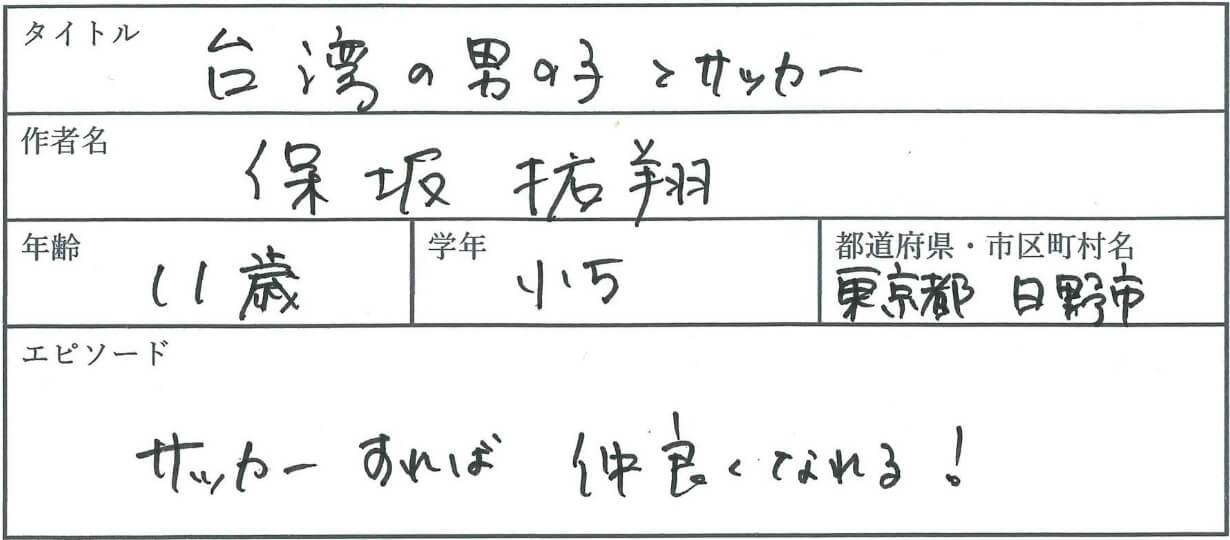 タイトル
台湾の男の子とサッカー
作者名
保坂 拓翔
年齢
11歳
学年
小5
都道府県・市区町村名
東京都 日野市
エピソード
サッカーすれば 仲良くなれる!